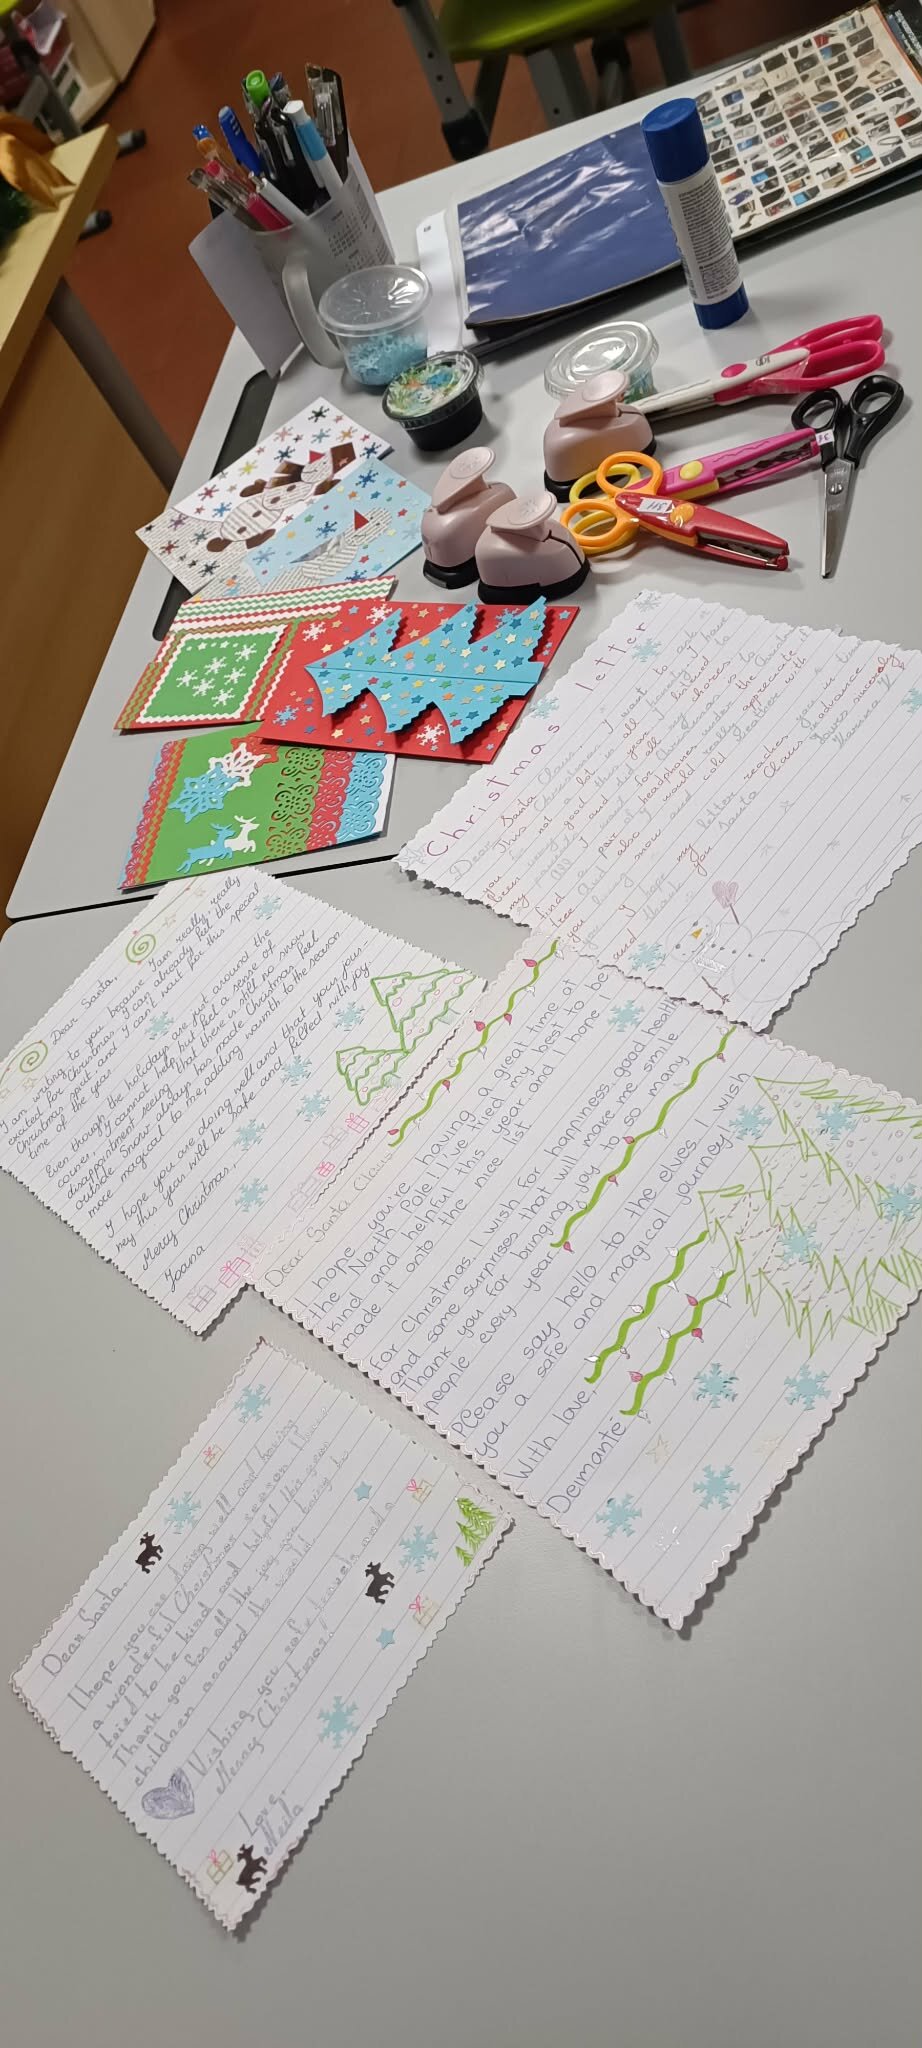 Christmas letter
Dear Santa Claus, I want to ask it
This Christmas. I want
you not a lot in all honesty. I have
been very good this year. I listened to
my parents and did all my chores.
All I want for Christmas is to
find a pair of headphones under the Christmas
tree. And also I would really appreciate it
you bring snow and cold weather with
you.
I hope my letter reaches you in time
and thank you Santa Claus in advance
Yours sincerely
Dear Santa,
I am writing to you because I am really, really
excited for Christmas. I can already feel the
Christmas spirit and I can't wait for this special
time of the year.
Even though the holidays are just around the
corner, I cannot help but feel a sense of
disappointment seeing that there is still no snow
outside. Snow always has made Christmas feel
more magical to me, adding warmth to the season.
I hope you are doing well and that your jour-
ney this year will be safe and filled with joy.
Merry Christmas,
Joana
Dear Santa Claus
I hope you're having a great time at
the North Pole! I've tried my best to be
kind and helpful this year and I hope I
made it onto the nice list
For Christmas, I wish for happiness, good health
and some surprises that will make me smile
Thank you for bringing joy to so many
people every year
Please say hello to the elves. I wish
you a safe and magical journey
With love,
Deimantė
Dear Santa,
I hope you are doing well and having
a wonderful Christmas season. I have
tried to be kind and helpful this year.
Thank you for all the joy you bring to
children around the world
Wishing you safe travels and
Merry Christmas!
Love,
Neila